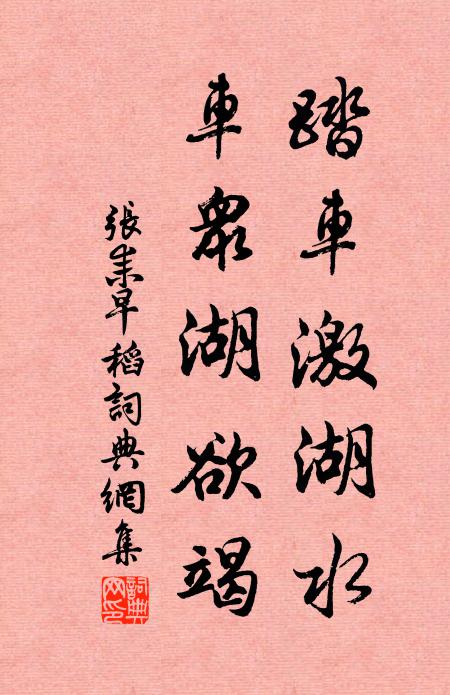 踏車激湖水
車眾湖欲竭
張耒早稻詞典網集
詞典网印